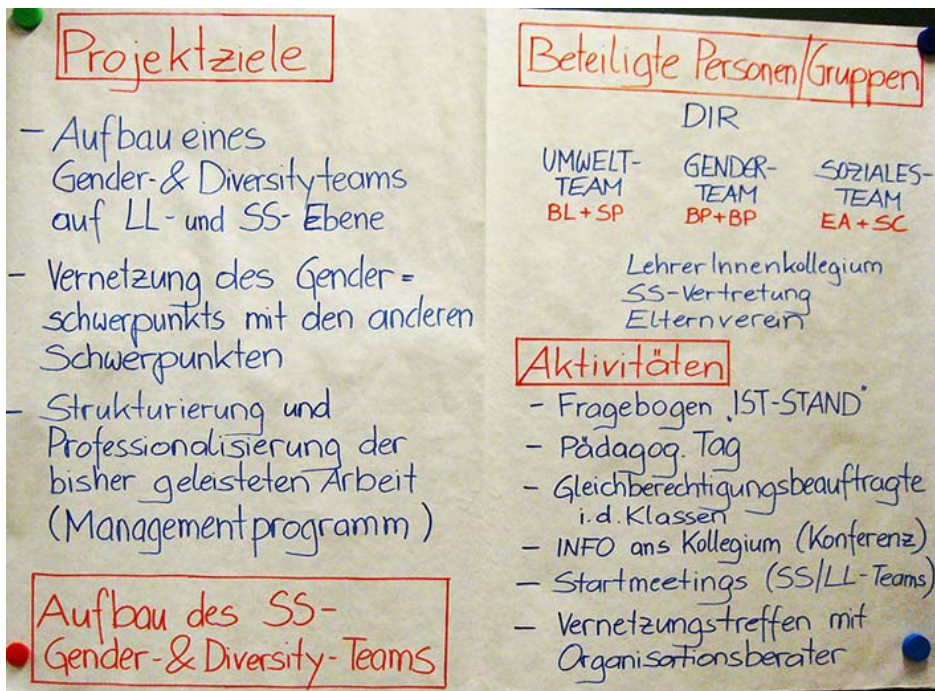 Projektziele
– Aufbau eines
Gender-& Diversityteams
auf LL- und SS-Ebene
– Vernetzung des Gender=
schwerpunkts mit den anderen
Schwerpunkten
– Strukturierung und
Professionalisierung der
bisher geleisteten Arbeit
(Managementprogramm)
Aufbau des SS-
Gender-& Diversity-Teams
Beteiligte Personen/Gruppen
DIR
UMWELT-
TEAM
BL+SP
GENDER-
TEAM
BP+BP
SOZIALES-
TEAM
EA+SC
LehrerInnenkollegium
SS-Vertretung
Elternverein
Aktivitäten
– Fragebogen „IST-STAND"
– Pädagog. Tag
– Gleichberechtigungsbeauftragte
i.d. Klassen
– INFO ans Kollegium (Konferenz)
– Startmeetings (SS/LL-Teams)
– Vernetzungstreffen mit
Organisationsberater